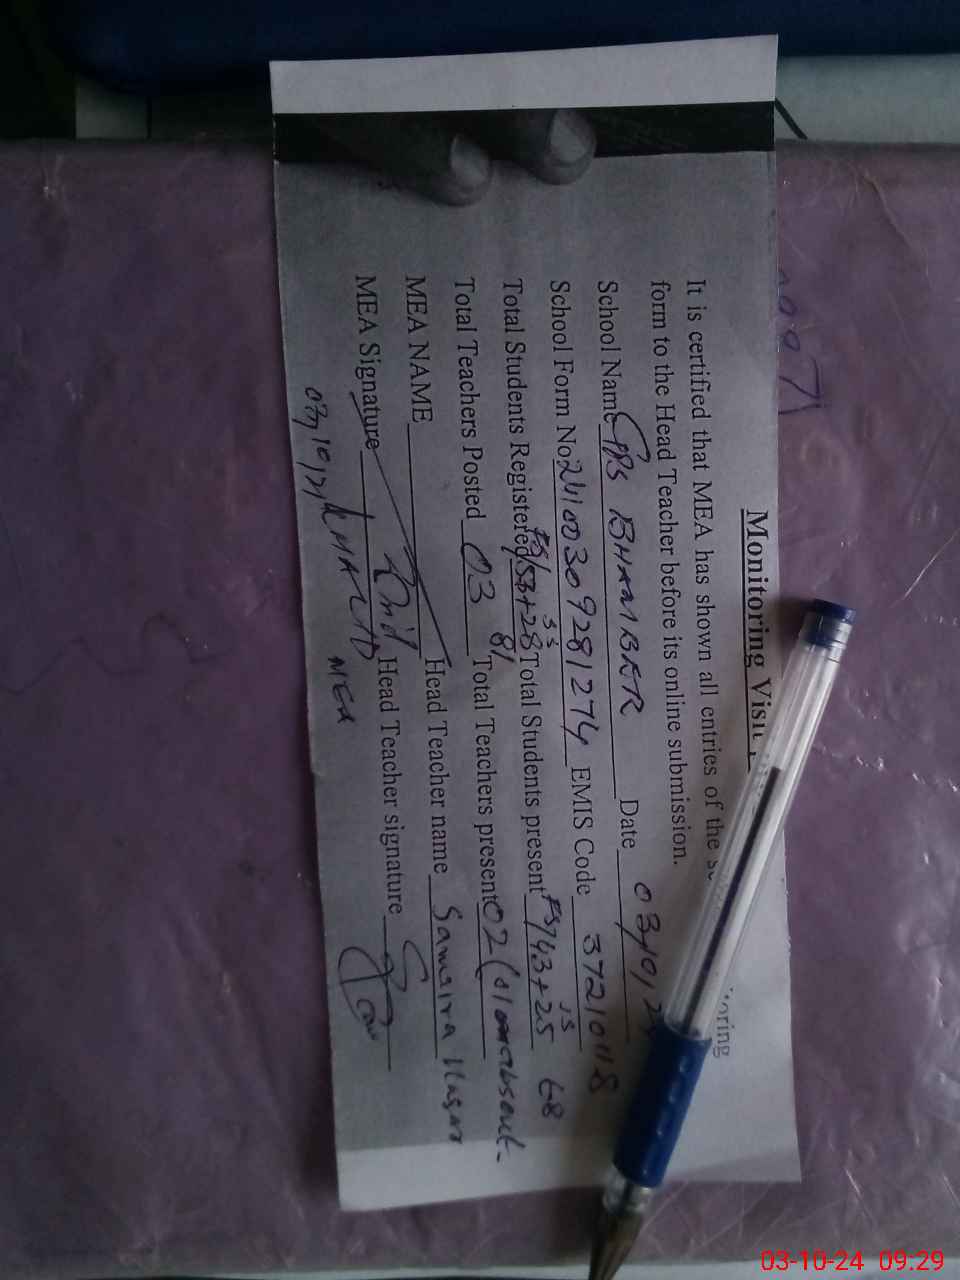 Monitoring Visit
It is certified that MEA has shown all entries of the
form to the Head Teacher before its online submission.
School Name GPS BHAMBER Date 03/10/24
School Form No 24100309281274 EMIS Code 37210118
Total Students Registered 53+28 81 Total Students present 43+25 68
Total Teachers Posted 03 Total Teachers present 02 (01 on absent.
MEA NAME Head Teacher name Samaira
MEA Signature Head Teacher signature
KHALID
MEA
03-10-24 09:29